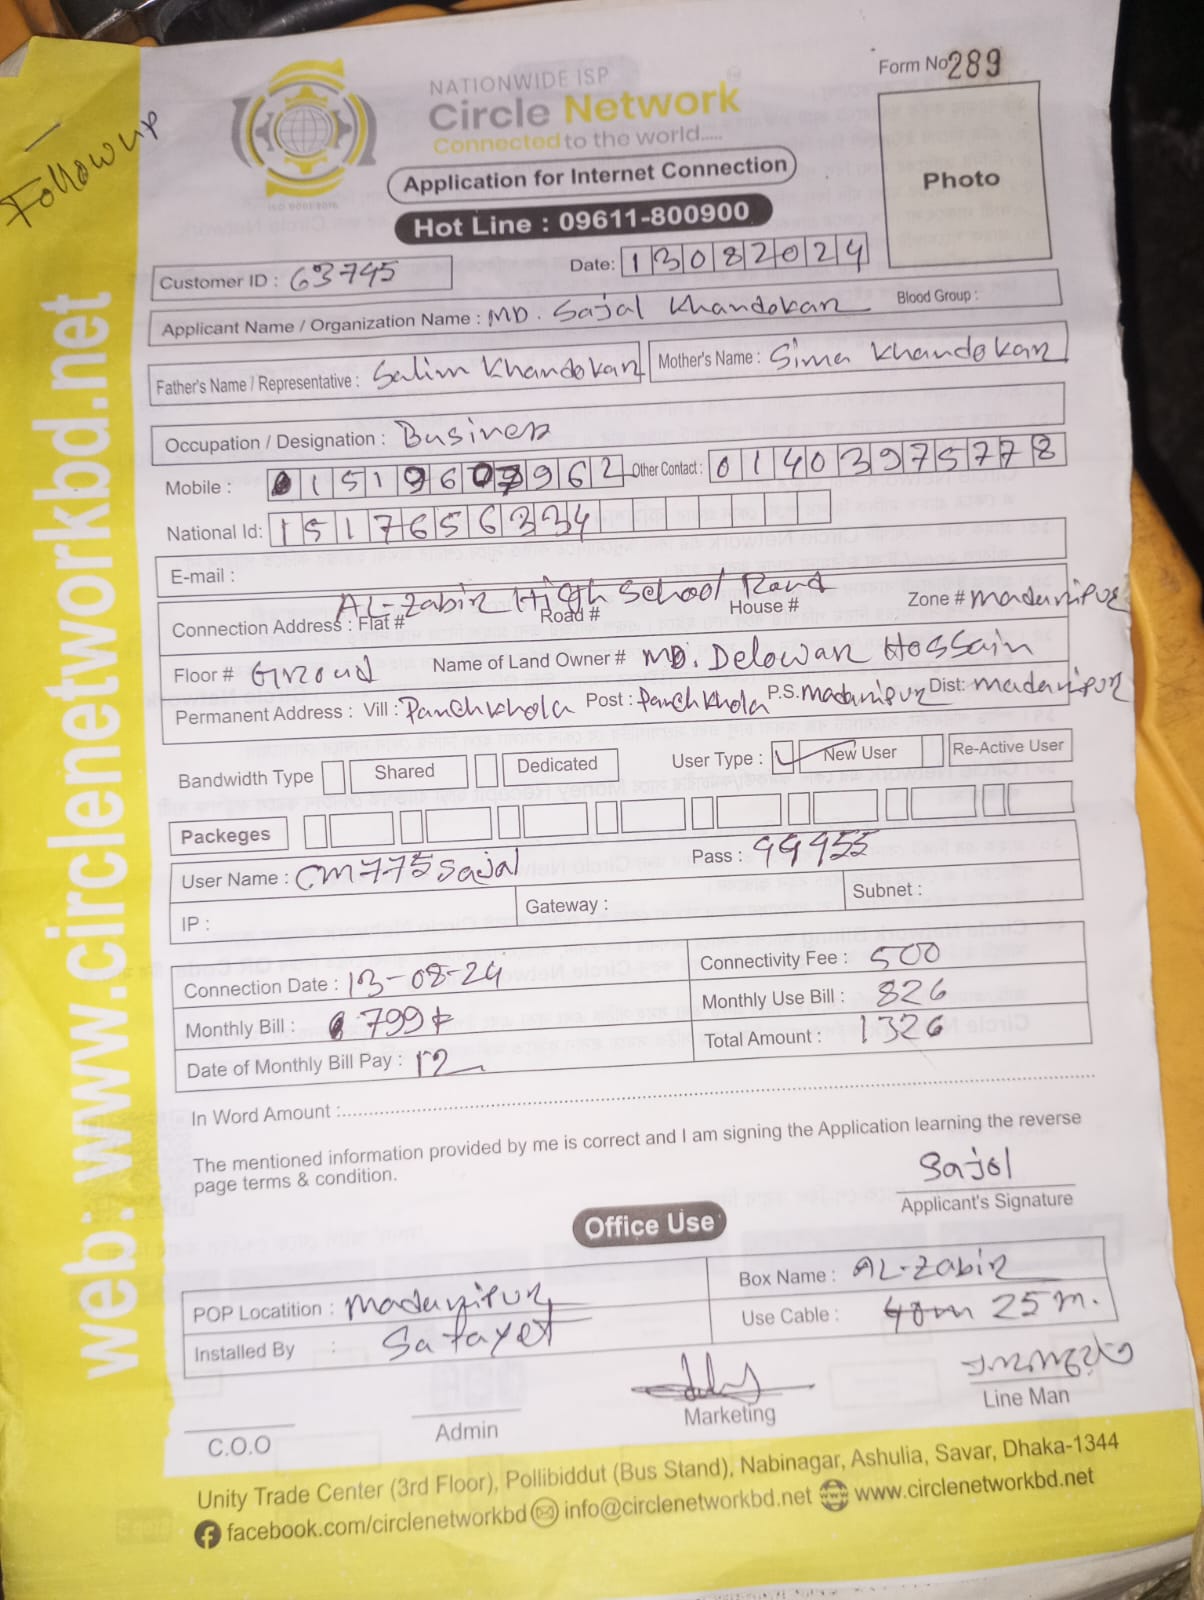 Follow up
NATIONWIDE ISP
Circle Network
Connected to the world.....
Form No 289
ISO 9001:2015
Application for Internet Connection
Hot Line : 09611-800900
Photo
Customer ID : 63745
Date: 13082024
Applicant Name / Organization Name : MD. Sajal Khandokar
Blood Group :
Father's Name / Representative : Salim Khandokar
Mother's Name : Sima Khandokar
Occupation / Designation : Business
Mobile : 01519607962
Other Contact : 01403975778
National Id: 1517656334
E-mail :
AL-Zabir High School Road
Connection Address : Flat # Road # House # Zone # Madaripur
Floor # Ground Name of Land Owner # MD. Delowar Hossain
Permanent Address : Vill : Panchkhola Post : Panchkhola P.S. Madaripur Dist: Madaripur
Bandwidth Type Shared Dedicated User Type : New User Re-Active User
Packeges
User Name : CM775Sajal Pass : 99955
IP : Gateway : Subnet :
Connection Date : 13-08-24 Connectivity Fee : 500
Monthly Bill : 799 Monthly Use Bill : 826
Date of Monthly Bill Pay : 12 Total Amount : 1326
In Word Amount :
The mentioned information provided by me is correct and I am signing the Application learning the reverse
page terms & condition.
Sajol
Applicant's Signature
Office Use
POP Locatition : Madaripur Box Name : AL-Zabir
Installed By : Safayet Use Cable : 40m 25m.
C.O.O Admin Marketing Line Man
Unity Trade Center (3rd Floor), Pollibiddut (Bus Stand), Nabinagar, Ashulia, Savar, Dhaka-1344
facebook.com/circlenetworkbd info@circlenetworkbd.net www.circlenetworkbd.net
web: www.circlenetworkbd.net